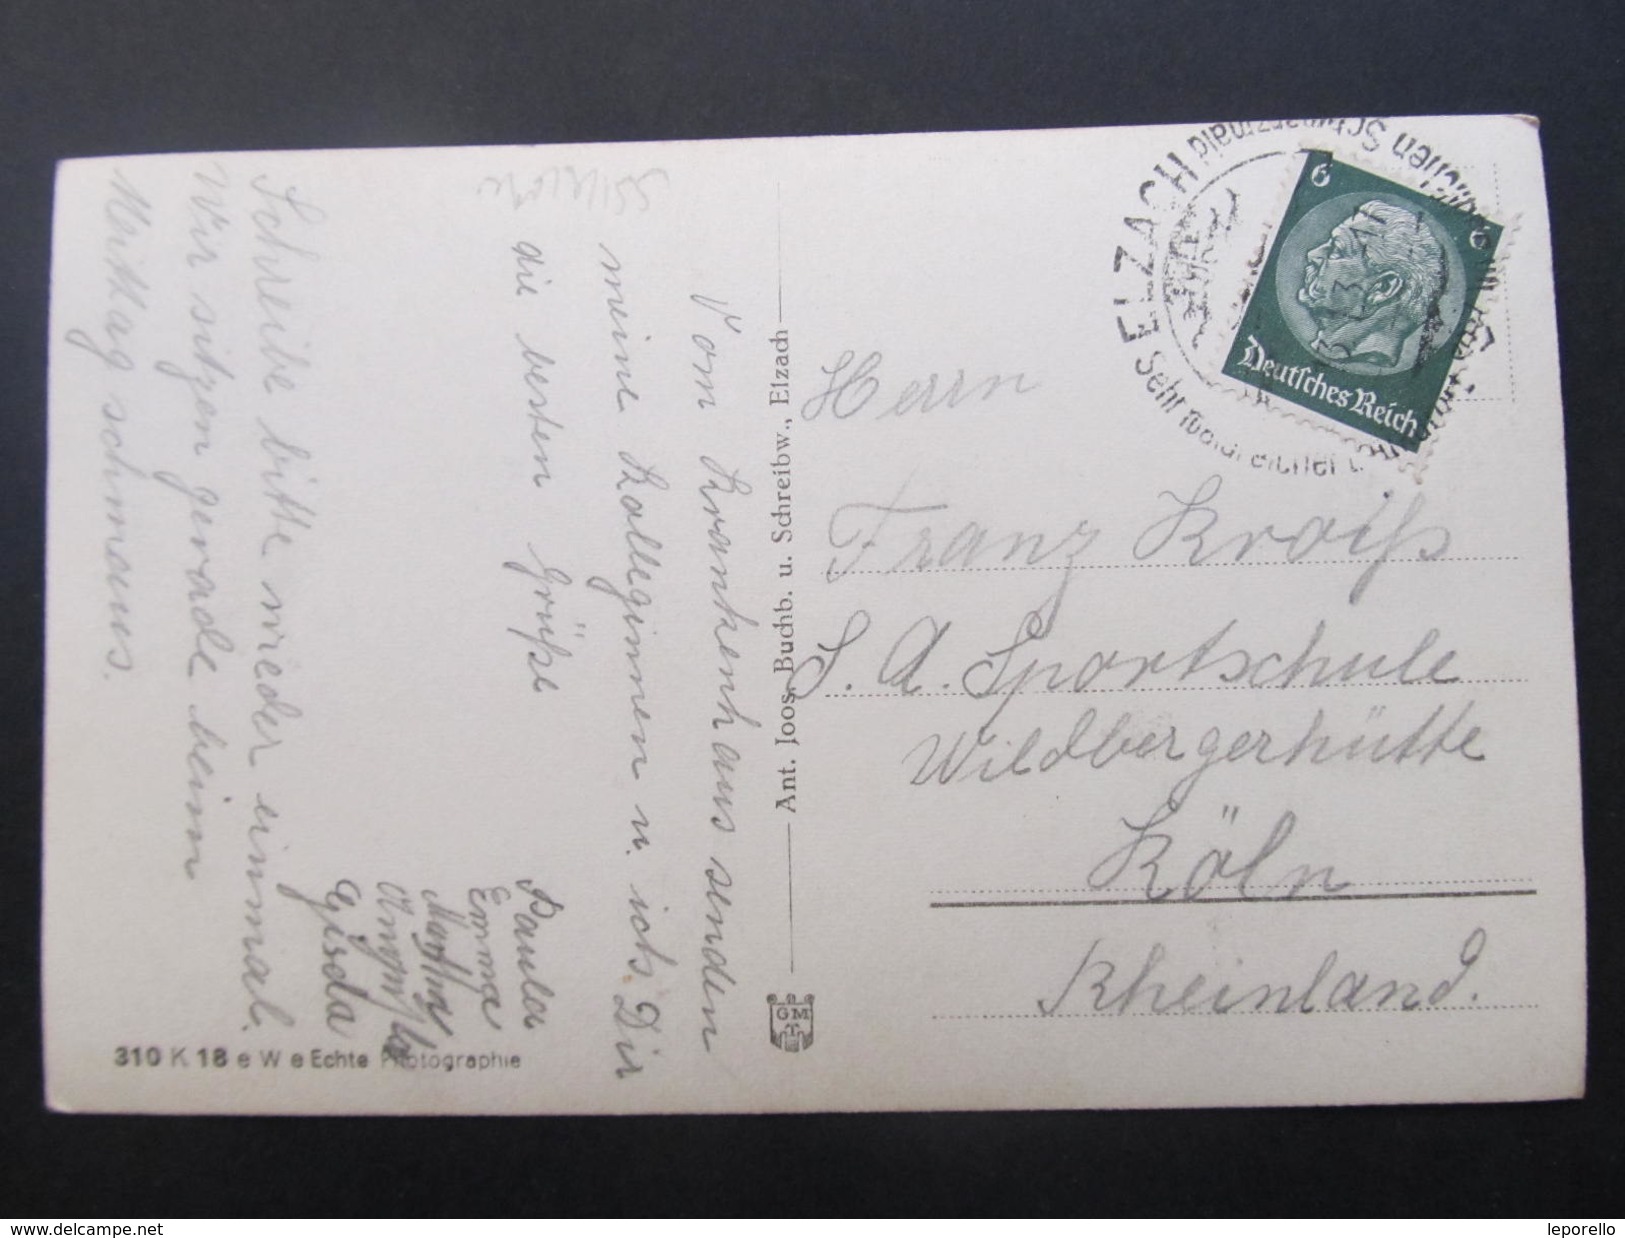 Vom Krankenhaus senden
meine Kolleginnen u. ich Dir
die besten Grüße
Paula
Emma
Martha
Gisela
Schreibe bitte wieder einmal.
Wir sitzen gerade beim
Mittag schmaus.
310 K 18 e W e Echte Photographie
Ant. Joos, Buchb. u. Schreibw., Elzach
GMT
ELZACH
Deutsches Reich
6
6
Herrn
Franz Kroiß
S. A. Sportschule
Wildbergerhütte
Köln
Rheinland.
http://www.delcampe.net
leporello